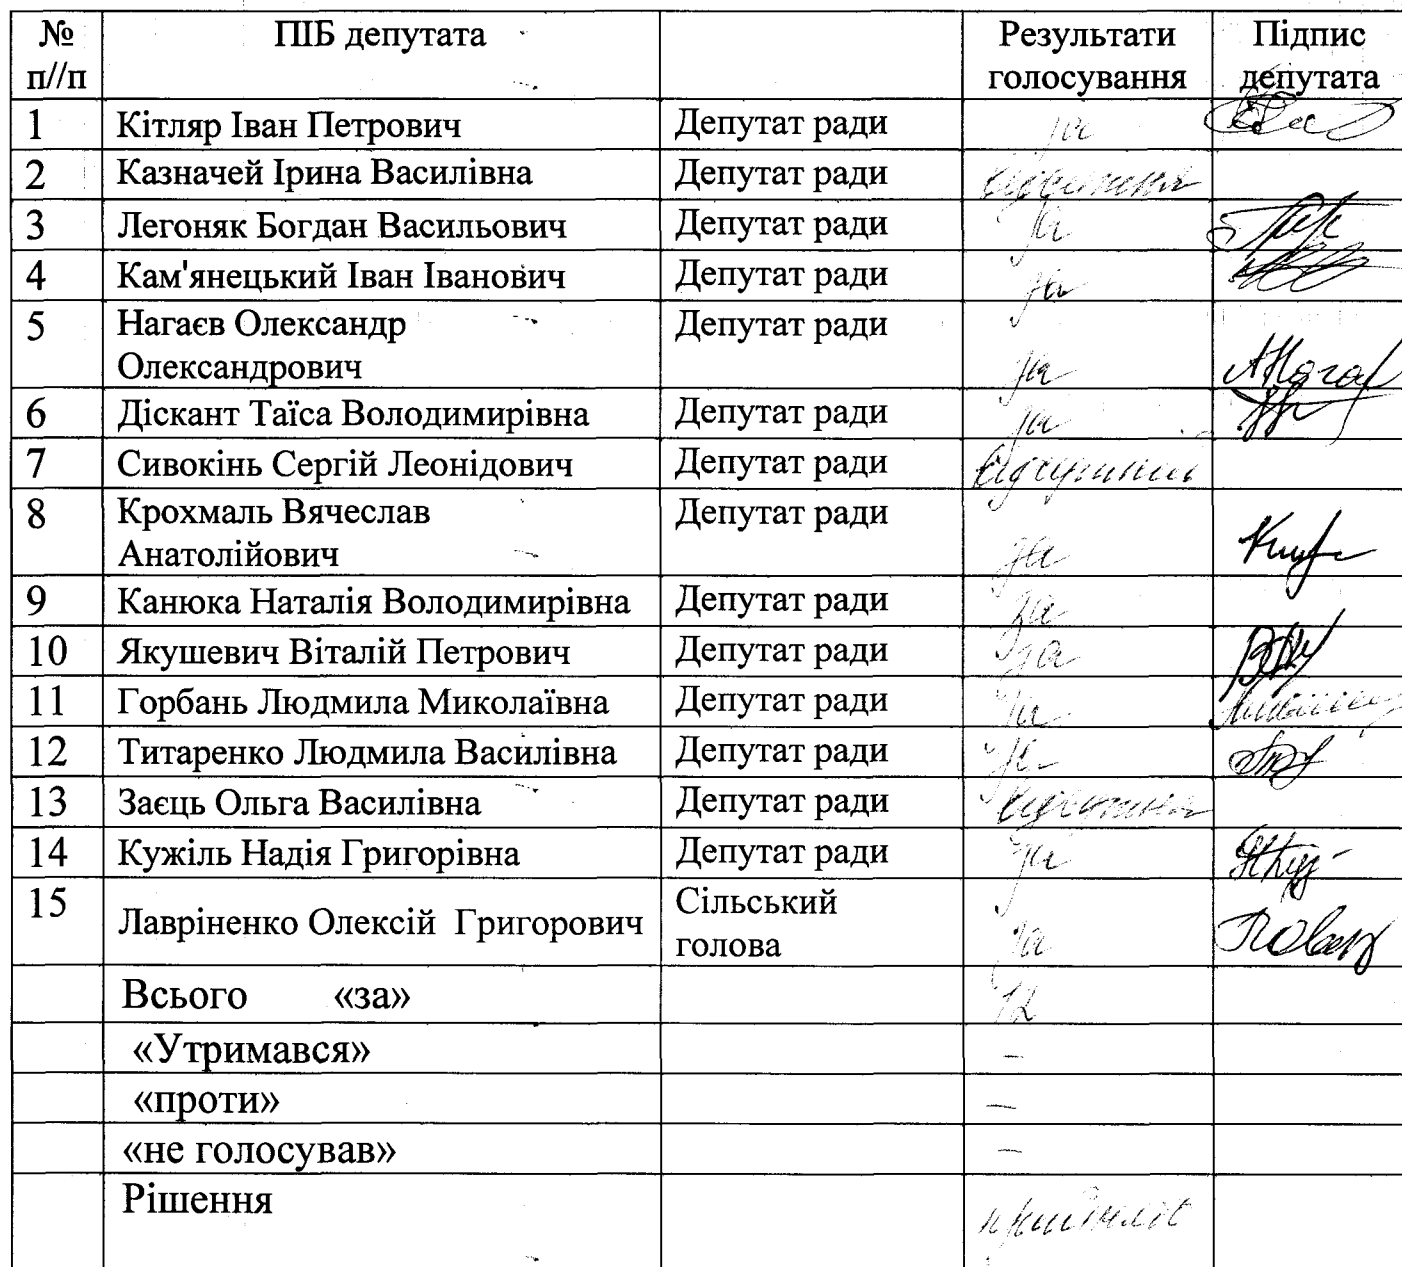 № ПІБ депутата Результати Підпис
п//п голосування депутата
1 Кітляр Іван Петрович Депутат ради за
2 Казначей Ірина Василівна Депутат ради відсутня
3 Легоняк Богдан Васильович Депутат ради за
4 Кам'янецький Іван Іванович Депутат ради за
5 Нагаєв Олександр Депутат ради
Олександрович за
6 Діскант Таїса Володимирівна Депутат ради за
7 Сивокінь Сергій Леонідович Депутат ради відсутній
8 Крохмаль Вячеслав Депутат ради
Анатолійович за
9 Канюка Наталія Володимирівна Депутат ради за
10 Якушевич Віталій Петрович Депутат ради за
11 Горбань Людмила Миколаївна Депутат ради за
12 Титаренко Людмила Василівна Депутат ради за
13 Заєць Ольга Василівна Депутат ради відсутня
14 Кужіль Надія Григорівна Депутат ради за
15 Лавріненко Олексій Григорович Сільський
голова за
Всього «за» 12
«Утримався» –
«проти» –
«не голосував» –
Рішення прийнято